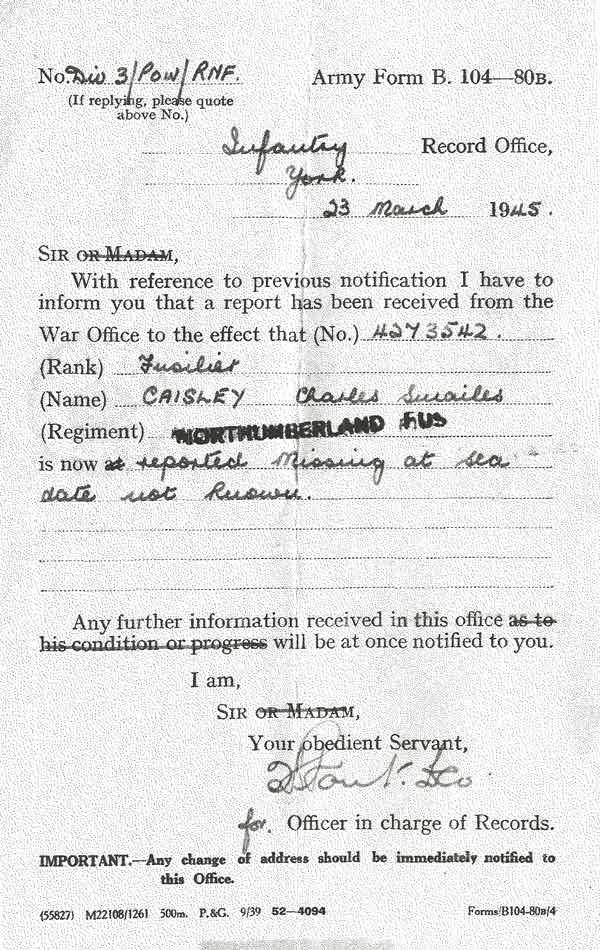 No. Div 3/POW/RNF. Army Form B. 104—80B.
(If replying, please quote
above No.)
Infantry Record Office,
York.
23 March 1945.
SIR OR MADAM,
With reference to previous notification I have to
inform you that a report has been received from the
War Office to the effect that (No.) 4273542.
(Rank) Fusilier
(Name) CAISLEY Charles Smailes
(Regiment) NORTHUMBERLAND FUS
is now at reported Missing at sea
date not known.
Any further information received in this office as to
his condition or progress will be at once notified to you.
I am,
SIR OR MADAM,
Your obedient Servant,
for. Officer in charge of Records.
IMPORTANT.—Any change of address should be immediately notified to
this Office.
(55827) M22108/1261 500m. P.&G. 9/39 52—4094 Forms/B104-80B/4